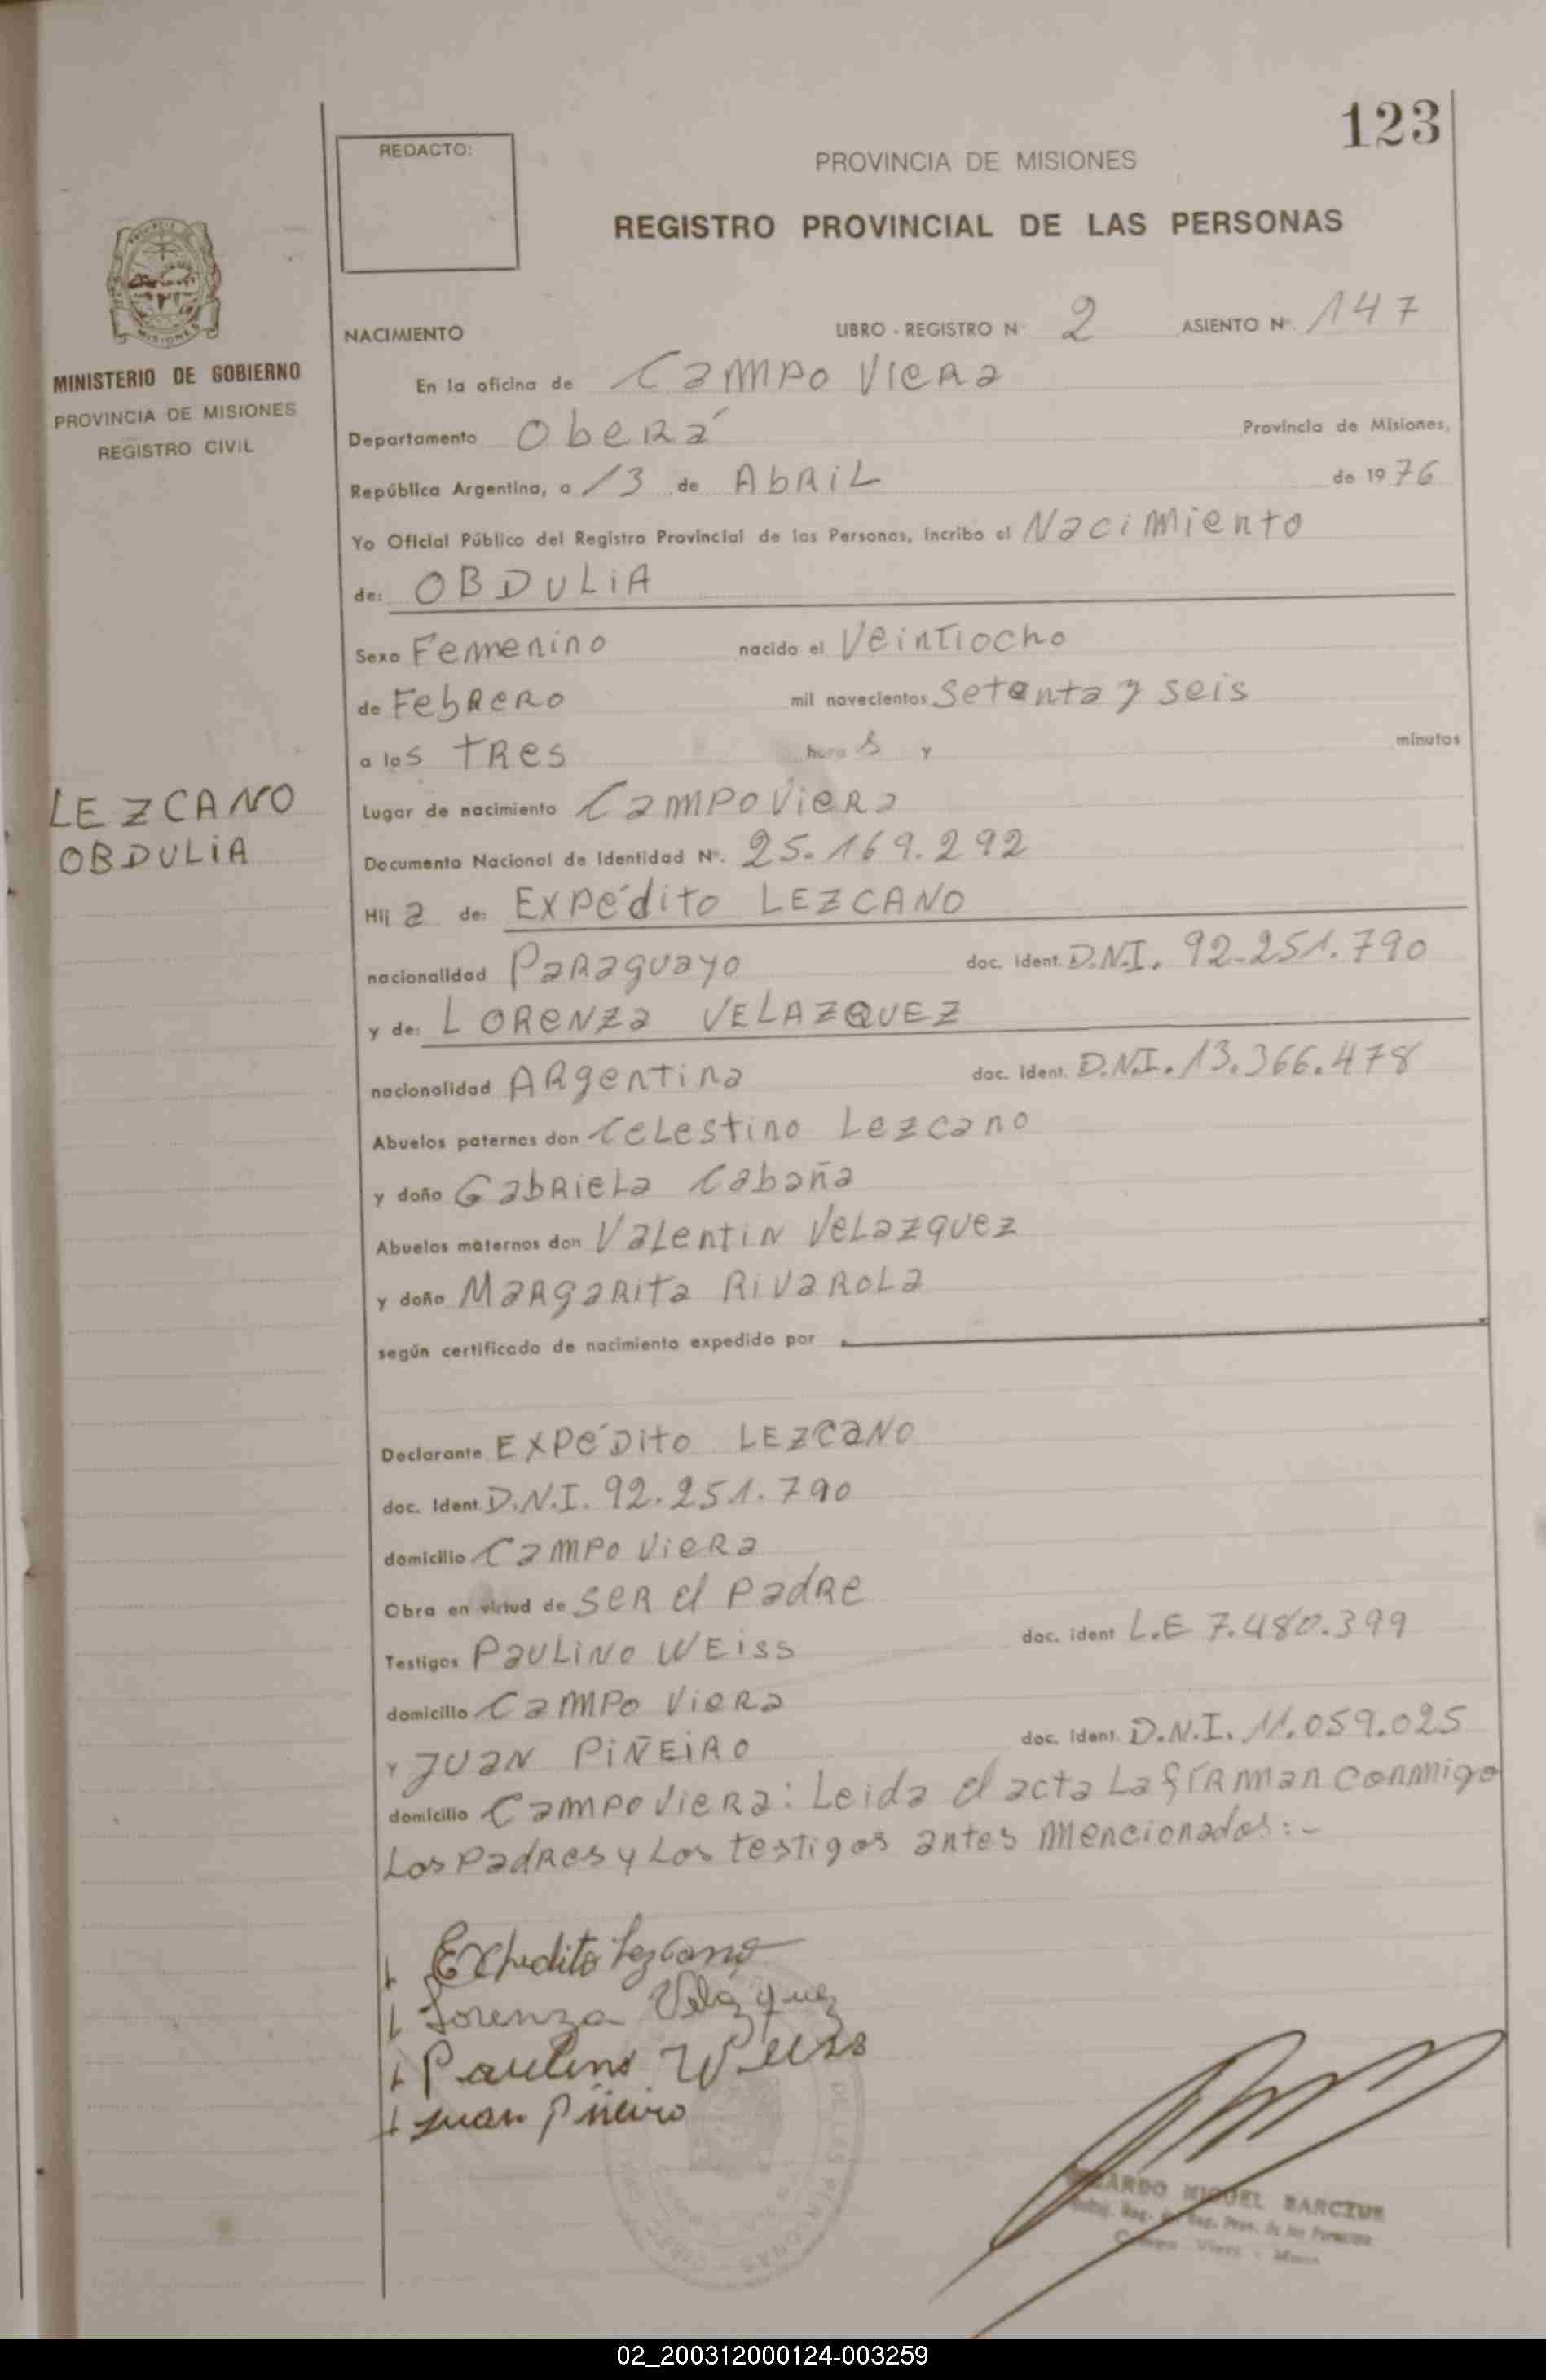 123
REDACTO:
PROVINCIA DE MISIONES
REGISTRO PROVINCIAL DE LAS PERSONAS
MISIONES
MINISTERIO DE GOBIERNO
PROVINCIA DE MISIONES
REGISTRO CIVIL
NACIMIENTO LIBRO - REGISTRO N 2 ASIENTO Nº. 147
En la oficina de Campo Viera
Departamento Oberá Provincia de Misiones,
República Argentina, a 13 de Abril de 1976
Yo Oficial Público del Registro Provincial de las Personas, incribo el Nacimiento
de: OBDULIA
Sexo Femenino nacido el Veintiocho
de Febrero mil novecientos Setenta y seis
a las tres horas y minutos
LEZCANO
OBDULIA
Lugar de nacimiento Campo Viera
Documento Nacional de Identidad Nº. 25.169.292
Hija de: Expédito LEZCANO
nacionalidad Paraguayo doc. ident. D.N.I. 92.251.790
y de: LORENZA VELAZQUEZ
nacionalidad Argentina doc. ident. D.N.I. 13.366.478
Abuelos paternos don Celestino Lezcano
y doña Gabriela Cabaña
Abuelos maternos don Valentin Velazquez
y doña Margarita Rivarola
según certificado de nacimiento expedido por
Declarante Expédito LEZCANO
doc. Ident. D.N.I. 92.251.790
domicilio Campo Viera
Obra en virtud de ser el padre
Testigos Paulino Weiss doc. ident L.E 7.480.399
domicilio Campo Viera
y Juan Piñeiro doc. ident. D.N.I. 11.059.025
domicilio Campo Viera: Leida el acta la firman conmigo
Los padres y Los testigos antes mencionados:-
Expedito Lezcano
Lorenza Velázquez
Paulino Weiss
Juan Piñeiro
MIGUEL BARCZUK
02_200312000124-003259